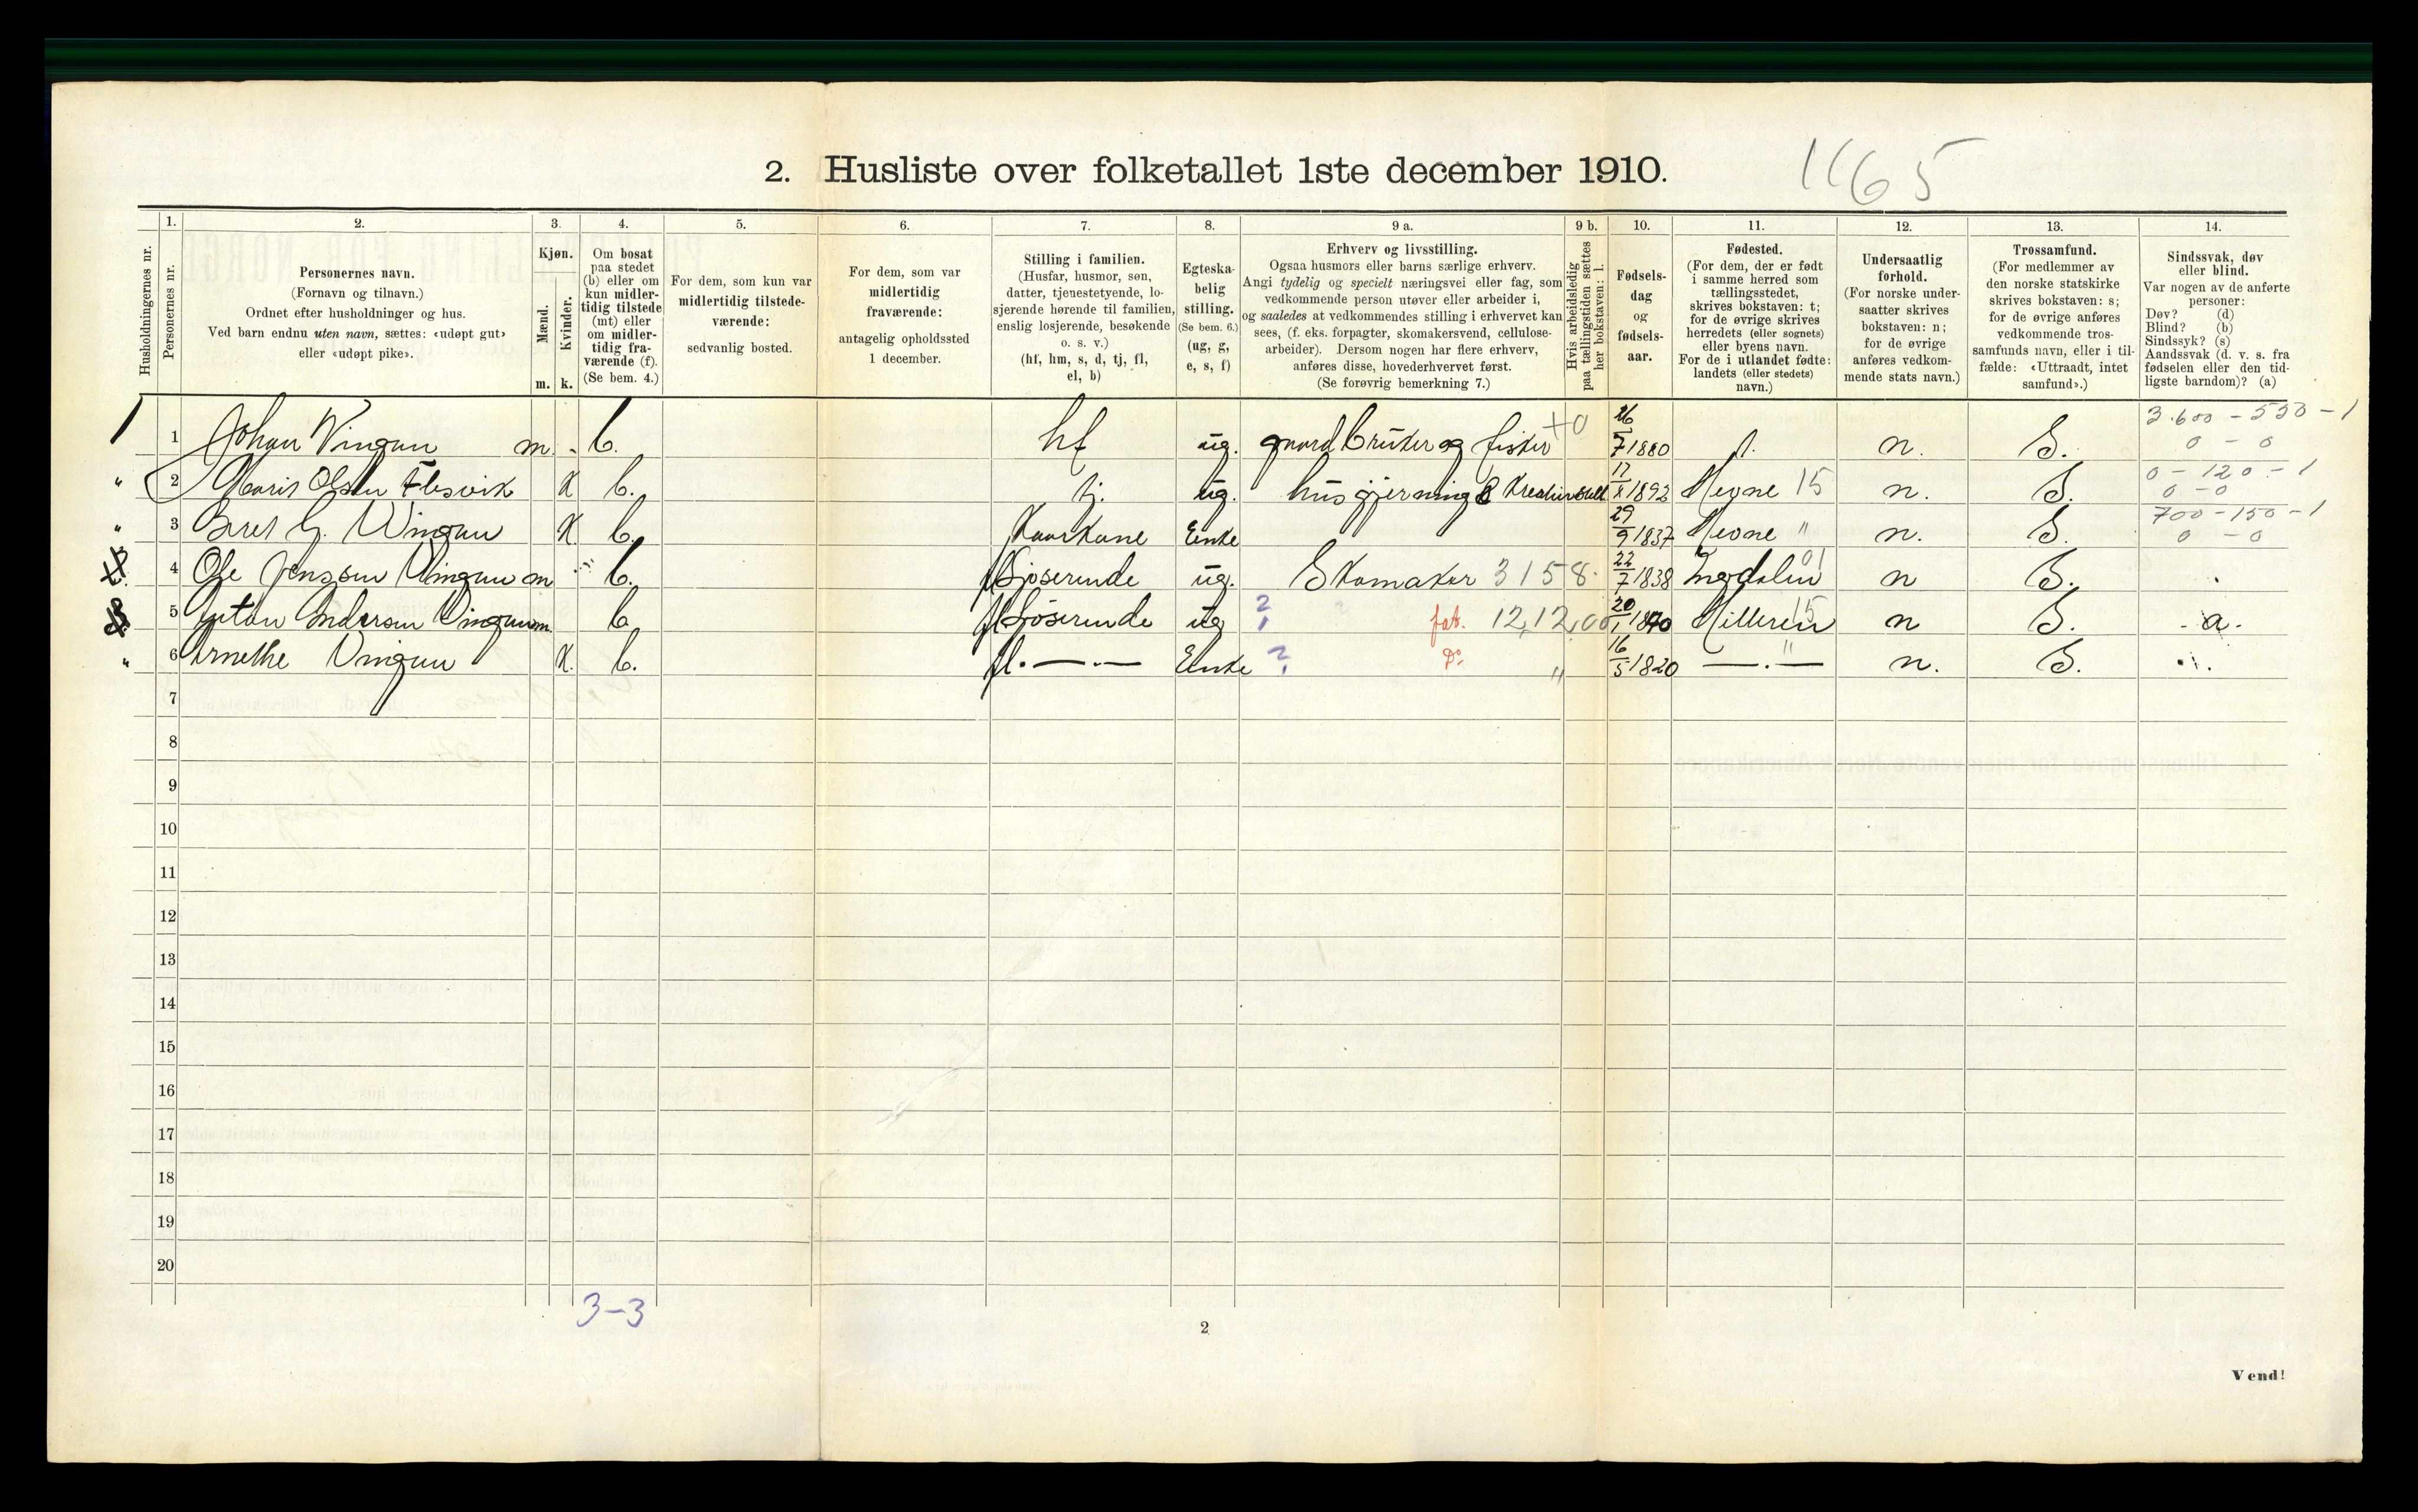 2. Husliste over folketallet 1ste december 1910.
1165
1. 2. 3. 4. 5. 6. 7. 8. 9 a. 9 b. 10. 11. 12. 13. 14.
Husholdningernes nr.
Personernes nr.
Personernes navn.
(Fornavn og tilnavn.)
Ordnet efter husholdninger og hus.
Ved barn endnu uten navn, sættes: «udøpt gut»
eller «udøpt pike».
Kjøn.
Mænd.
Kvinder.
m. k.
Om bosat
paa stedet
(b) eller om
kun midler-
tidig tilstede
(mt) eller
om midler-
tidig fra-
værende (f).
(Se bem. 4.)
For dem, som kun var
midlertidig tilstede-
værende:
sedvanlig bosted.
For dem, som var
midlertidig
fraværende:
antagelig opholdssted
1 december.
Stilling i familien.
(Husfar, husmor, søn,
datter, tjenestetyende, lo-
sjerende hørende til familien,
enslig losjerende, besøkende
o. s. v.)
(hf, hm, s, d, tj, fl,
el, b)
Egteska-
belig
stilling.
(Se bem. 6.)
(ug, g,
e, s, f)
Erhverv og livsstilling.
Ogsaa husmors eller barns særlige erhverv.
Angi tydelig og specielt næringsvei eller fag, som
vedkommende person utøver eller arbeider i,
og saaledes at vedkommendes stilling i erhvervet kan
sees, (f. eks. forpagter, skomakersvend, cellulose-
arbeider). Dersom nogen har flere erhverv,
anføres disse, hovederhvervet først.
(Se forøvrig bemerkning 7.)
Hvis arbeidsledig
paa tællingstiden sættes
her bokstaven: l.
Fødsels-
dag
og
fødsels-
aar.
Fødested.
(For dem, der er født
i samme herred som
tællingsstedet,
skrives bokstaven: t;
for de øvrige skrives
herredets (eller sognets)
eller byens navn.
For de i utlandet fødte:
landets (eller stedets)
navn.)
Undersaatlig
forhold.
(For norske under-
saatter skrives
bokstaven: n;
for de øvrige
anføres vedkom-
mende stats navn.)
Trossamfund.
(For medlemmer av
den norske statskirke
skrives bokstaven: s;
for de øvrige anføres
vedkommende tros-
samfunds navn, eller i til-
fælde: «Uttraadt, intet
samfund».)
Sindssvak, døv
eller blind.
Var nogen av de anførte
personer:
Døv? (d)
Blind? (b)
Sindssyk? (s)
Aandssvak (d. v. s. fra
fødselen eller den tid-
ligste barndom)? (a)
1 1 Johan Vingan m. - b. hf ug. gaardbruker og fisker +0 26/7 1880 t. n. S. 3.600 - 550 - 1 0 - 0
" 2 Maris Olsen Flesvik K b. tj. ug. husgjerning & Kreaturstell 17/X 1892 Hevne 15 n. S. 0 - 120 - 1 0 - 0
" 3 Beret G. Vingan K b. Kaarkone Enke 29/9 1837 Hevne " n. S. 700 - 150 - 1 0 - 0
4 Ole Jenssen Vingan m b. losjerende ug. Skomaker 3158 22/7 1838 01 n S.
5 Anton Andersen Vingan m. b. fl losjerende ug ? fat. 12,12,00 20/1 1840 Hitteren 15 n S. - a.
" 6 Arnethe Vingan K. b. fl. —·— Enke ? Do. " 16/5 1820 —·— " n. S.
7
8
9
10
11
12
13
14
15
16
17
18
19
20
3-3
2
Vend!